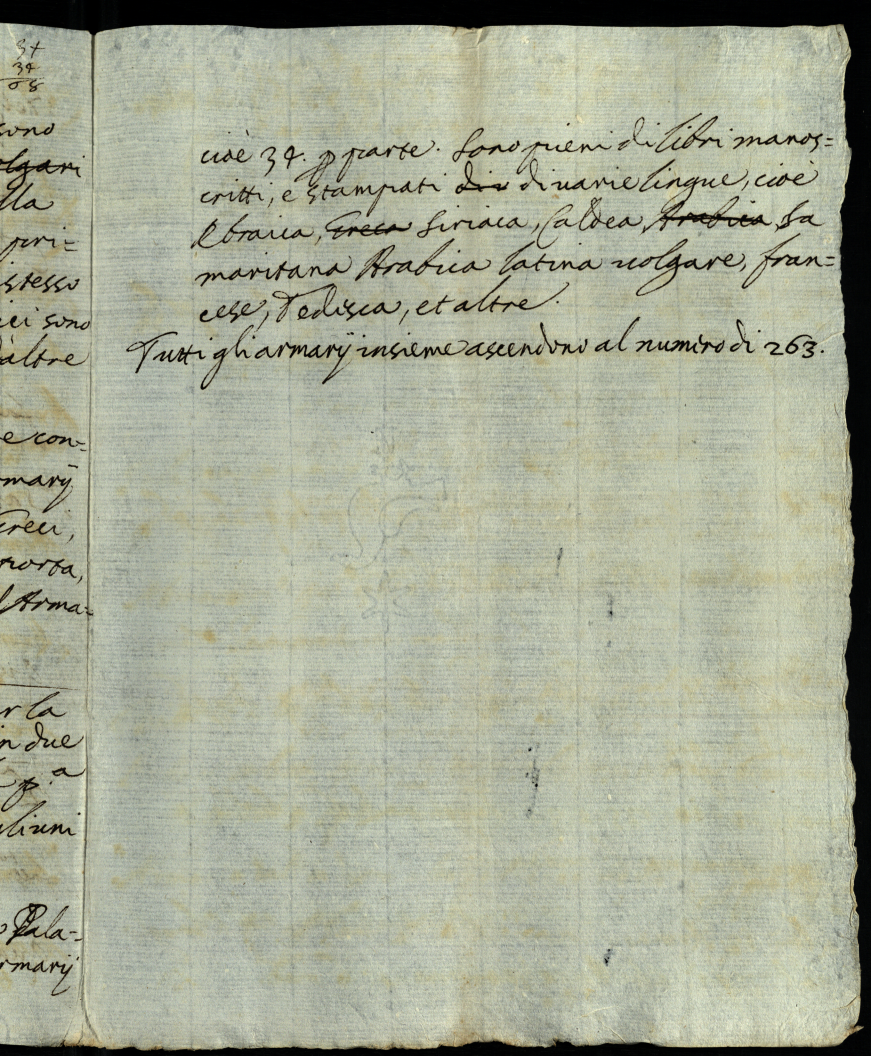 34
34
08
sono
olgari
lla
pri=
istesso
ici sono
altre
e con=
rmarÿ
Greci,
porta,
l Arma=
r la
in due
p.ª
Pala=
rmarÿ
cioè 34. p parte. Sono pieni di libri manos=
critti, e stampati di varie lingue, cioè
Ebraica, Greca Siriaca, Caldea, Arabica, Sa
maritana Arabica latina volgare, fran=
cese, Tedisca, et altre.
Tutti gli armarÿ insieme ascendono al numero di 263.